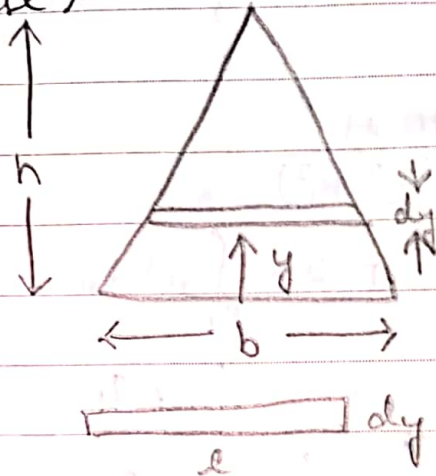 h
dy
y
b
dy
l